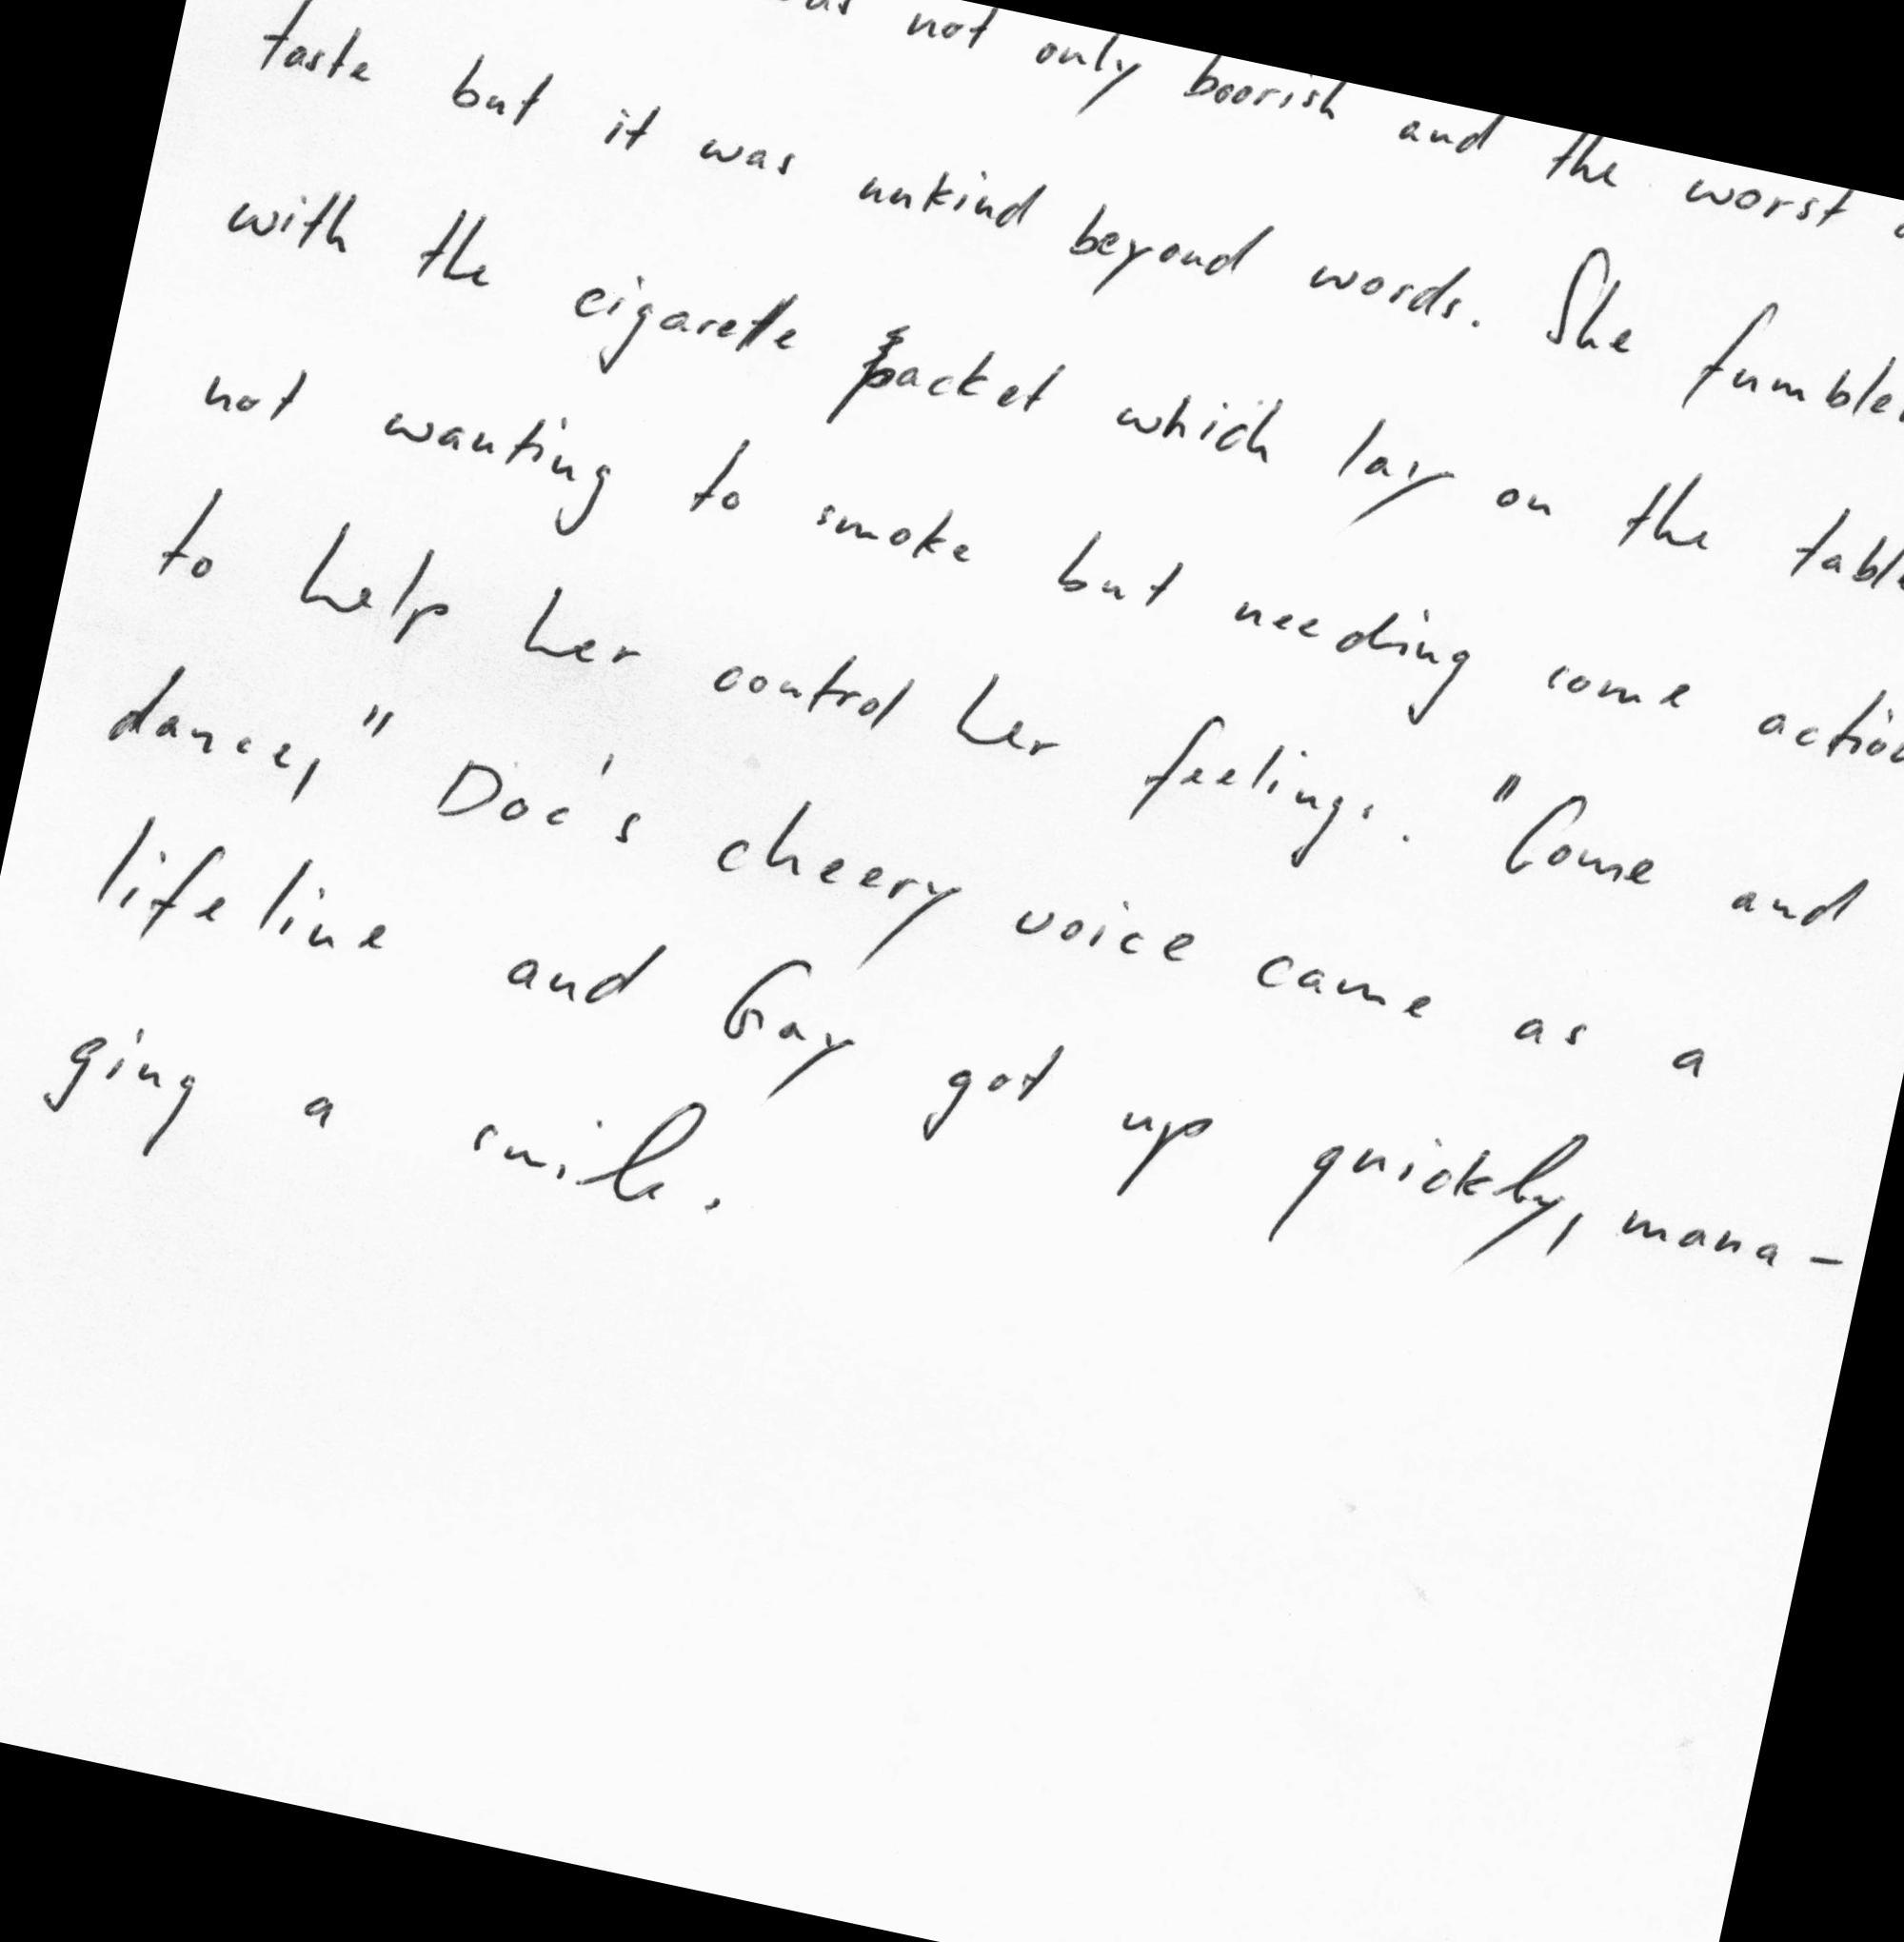 not only boorish and the worst
taste but it was unkind beyond words. She
with the cigarette packet which lay on the
not wanting to smoke but needing some
to help her control her feelings. "Come and
dance," Doc's cheery voice came as a
lifeline and Gay got up quickly, mana-
ging a smile.